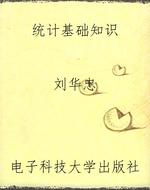 统计基础知识
刘华忠
电子科技大学出版社